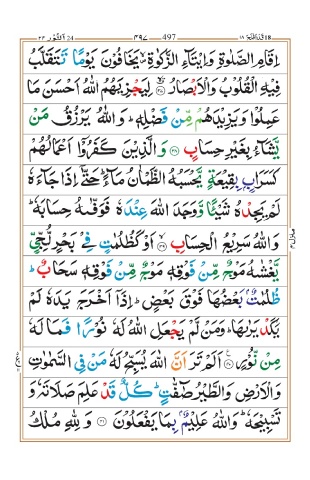 النور ٢٤ ٤٩٧ 497 قد افلح ١٨
اِقَامِ الصَّلٰوةِ وَاِيْتَآءِ الزَّكٰوةِ ۙ يَخَافُوْنَ يَوْمًا تَتَقَلَّبُ
فِيْهِ الْقُلُوْبُ وَالْاَبْصَارُ ۙ﴿۳۷﴾ لِيَجْزِيَهُمُ اللّٰهُ اَحْسَنَ مَا
عَمِلُوْا وَيَزِيْدَهُمْ مِّنْ فَضْلِهٖ ؕ وَاللّٰهُ يَرْزُقُ مَنْ
يَّشَآءُ بِغَيْرِ حِسَابٍ ﴿۳۸﴾ وَالَّذِيْنَ كَفَرُوْۤا اَعْمَالُهُمْ
كَسَرَابٍۭ بِقِيْعَةٍ يَّحْسَبُهُ الظَّمْاٰنُ مَآءً ؕ حَتّٰۤى اِذَا جَآءَهٗ
لَمْ يَجِدْهُ شَيْــًٔا وَّوَجَدَ اللّٰهَ عِنْدَهٗ فَوَفّٰٮهُ حِسَابَهٗ ؕ
وَاللّٰهُ سَرِيْعُ الْحِسَابِ ۙ﴿۳۹﴾ اَوْ كَظُلُمٰتٍ فِيْ بَحْرٍ لُّجِّيٍّ
يَّغْشٰٮهُ مَوْجٌ مِّنْ فَوْقِهٖ مَوْجٌ مِّنْ فَوْقِهٖ سَحَابٌ ؕ
ظُلُمٰتٌۢ بَعْضُهَا فَوْقَ بَعْضٍ ؕ اِذَاۤ اَخْرَجَ يَدَهٗ لَمْ
يَكَدْ يَرٰٮهَا ؕ وَمَنْ لَّمْ يَجْعَلِ اللّٰهُ لَهٗ نُوْرًا فَمَا لَهٗ
مِنْ نُّوْرٍ ﴿۴۰﴾ اَلَمْ تَرَ اَنَّ اللّٰهَ يُسَبِّحُ لَهٗ مَنْ فِي السَّمٰوٰتِ
وَالْاَرْضِ وَالطَّيْرُ صٰٓفّٰتٍ ؕ كُلٌّ قَدْ عَلِمَ صَلَاتَهٗ وَ
تَسْبِيْحَهٗ ؕ وَاللّٰهُ عَلِيْمٌۢ بِمَا يَفْعَلُوْنَ ﴿۴۱﴾ وَلِلّٰهِ مُلْكُ